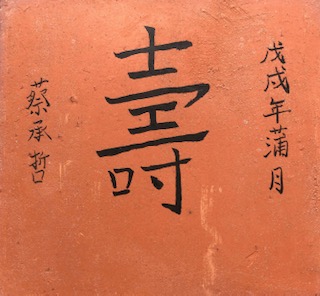 戊戌年蒲月
壽
蔡承哲